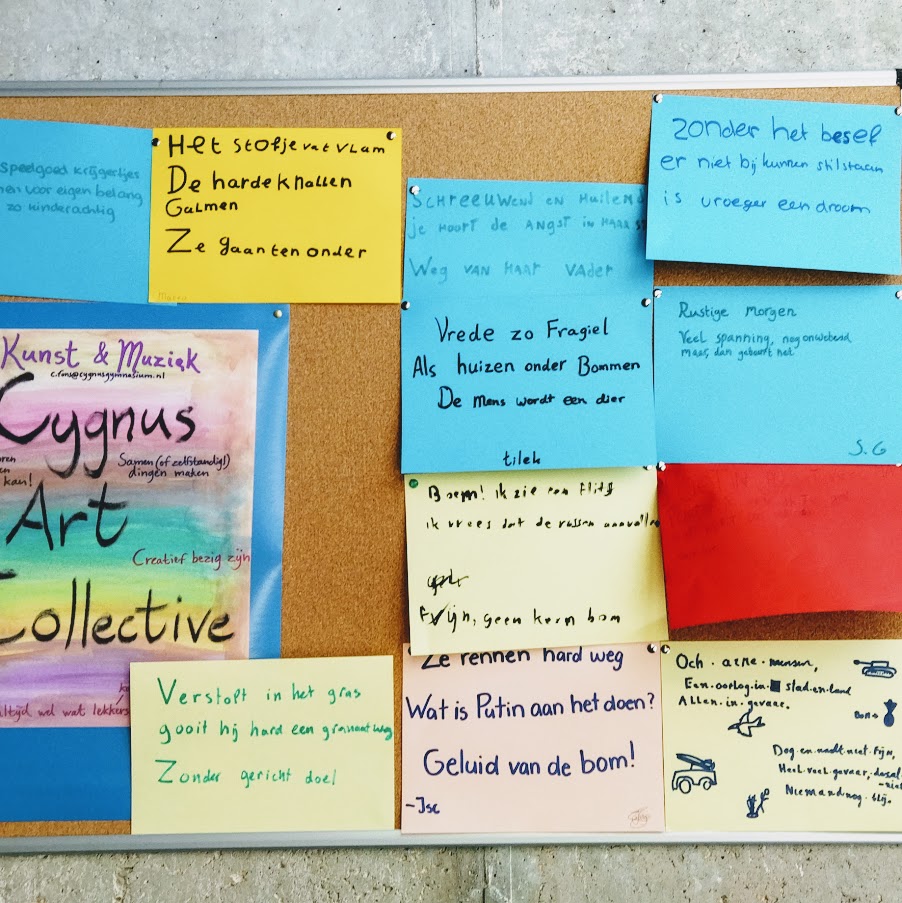 speelgoed krijgertjes
voor eigen belang
zo kinderachtig
Het stofje vat vlam
De harde knallen
Galmen
Ze gaan ten onder
Marco
SCHREEUWEND EN HUILEND
je HOORT DE ANGST IN HAAR
Weg VAN HAAR VADER
zonder het besef
er niet bij kunnen stilstaan
is vroeger een droom
Vrede zo Fragiel
Als huizen onder Bommen
De mens wordt een dier
tilek
Rustige morgen
Veel spanning, nog onwetend
maar, dan gebeurt het
S.G
Kunst & Muziek
c.fons@cygnusgymnasium.nl
Cygnus
Samen (of zelfstandig!)
dingen maken
kan!
Art
Creatief bezig zijn
Collective
altijd wel wat lekkers
Boem! Ik zie een flits
ik vrees dat de russen aanvallen
Fijn, geen kern bom
Verstopt in het gras
gooit hij hard een granaat weg
Zonder gericht doel
Ze rennen hard weg
Wat is Putin aan het doen?
Geluid van de bom!
-Isc
Och arme mensen,
Een oorlog in stad en land
Allen in gevaar.
Bom →
Dag en nacht niet fijn,
Heel veel gevaar,
Niemand nog blij.